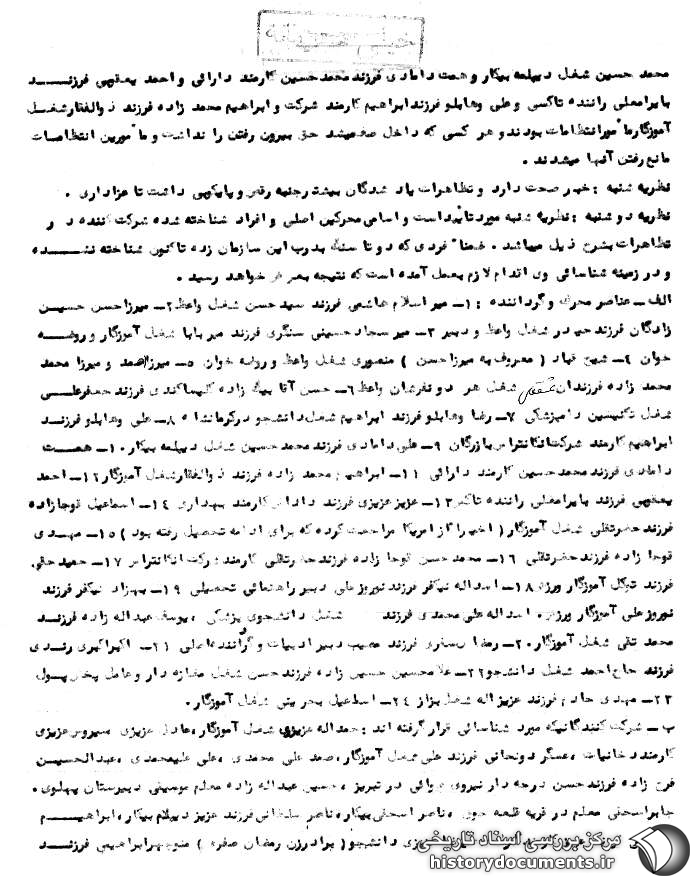 خیلی محرمانه
محمد حسین شغل دیپلمه بیکار و همت دامادی فرزند محمد حسین کارمند دارائی و احمد یعقوبی فرزنـــد
بابا معلی راننده تاکسی و علی وهابلو فرزند ابراهیم کارمند شرکت و ابراهیم محمد زاده فرزند ذوالفقار شغل
آموزگار مأمور انتظامات بودند و هر کسی که داخل صف میشد حق بیرون رفتن را نداشت و مأمورین انتظامات
مانع رفتن آنها میشدند .
نظریه شنبه : خبر صحت دارد و تظاهرات یاد شدگان بیشتر جنبه رقص و پایکوبی داشت تا عزاداری .
نظریه دوشنبه : نظریه شنبه مورد تأیید است و اسامی محرکین اصلی و افراد شناخته شده شرکت کننده در
تظاهرات بشرح ذیل میباشد . ضمناً فردی که دو تا سنگ بدرب این سازمان زده تاکنون شناخته نشـــده
و در زمینه شناسائی وی اقدام لازم بعمل آمده است که نتیجه بعرض خواهد رسید .
الف ـ عناصر محرک و گرداننده : ۱ـ میر اسلام هاشمی فرزند سید حسن شغل واعظ ۲ـ میرزا حسن حسین
زادگان فرزند حیدر شغل واعظ و دبیر ۳ـ میر سجاد حسینی سنگری فرزند میر بابا شغل آموزگار و روضه
خوان ۴ـ شیخ قباد ( معروف به میرزا حسن ) منصوری شغل واعظ و روضه خوان ۵ـ میرزا صمد و میرزا محمد
محمد زاده فرزندان شغل هر دو نفرشان واعظ ۶ـ حسن آقا بیگ زاده فرزند جعفرعلی
شغل تکنیسین دامپزشکی ۷ـ رضا وهابلو فرزند ابراهیم شغل دانشجو در کرمانشاه ۸ـ علی وهابلو فرزنـد
ابراهیم کارمند شرکت بازرگان ۹ـ علی دامادی فرزند محمد حسین شغل دیپلمه بیکار ۱۰ـ همـت
دامادی فرزند محمد حسین کارمند دارائی ۱۱ـ ابراهیم محمد زاده فرزند ذوالفقار شغل آموزگار ۱۲ـ احمد
یعقوبی فرزند بابا معلی راننده تاکسی ۱۳ـ عزیز عزیزی فرزند داداش کارمند بهداری ۱۴ـ اسماعیل قوجا زاده
فرزند حضرتقلی شغل آموزگار ( اخیراً از امریکا مراجعت کرده که برای ادامه تحصیل رفته بود ) ۱۵ـ مهـدی
قوجا زاده فرزند حضرتقلی ۱۶ـ محمد حسن قوجا زاده فرزند حضرتقلی کارمند شرکت ۱۷ـ حمید حقی
فرزند توکل آموزگار ورزش ۱۸ـ اسداله نیکفر فرزند نوروز علی دبیر راهنمائی تحصیلی ۱۹ـ بهزاد نیکفر فرزند
نوروز علی آموزگار ورزش . اسداله علی محمدی فرزند شغل دانشجوی پزشکی ، یوسف عبداله زاده فرزنـد
محمد تقی شغل آموزگار . ۲۰ـ رمضان فرزند حبیب دبیر ادبیات و گرداننده اصلی ۲۱ـ اکبر اکبری
فرزند حاج احمد شغل دانشجو ۲۲ـ غلامحسین حسین زاده فرزند حسن شغل مغازه دار و عامل پخش پـول
۲۳ـ مهدی خادم فرزند عزیز اله شغل بزاز ۲۴ـ اسماعیل بحرینی شغل آموزگار .
ب ـ شرکت کنندگانیکه مورد شناسائی قرار گرفته اند : حمداله عزیزی شغل آموزگار ، عادل عزیزی سیروس عزیزی
کارمند دخانیات ، عسگر فرزند علی شغل آموزگار ، صمد علی محمدی ، علی علیمحمدی ، عبدالحسین
فرج زاده فرزند حسن درجه دار نیروی هوائی در تبریز ، حسین عبداله زاده معلم موسیقی دبیرستان پهلوی .
جابر اسحقی معلم در قریه قلعه ، ناصر اسحقی بیکار ، ناصر سلطانی فرزند عزیز دیپلم بیکار ، ابراهیـم
دانشجو ( برادر زن رمضان صفری ) منوچهر ابراهیمی فرزنـد
مرکز بررسی اسناد تاریخی
historydocuments.ir